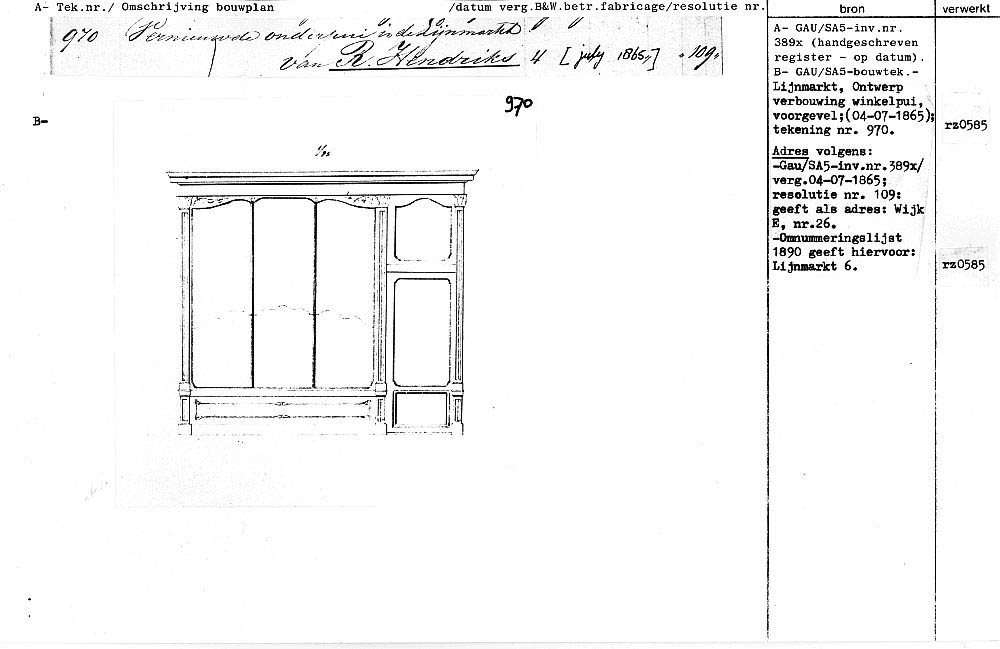 A- Tek.nr./ Omschrijving bouwplan /datum verg.B&W.betr.fabricage/resolutie nr.
970 Vernieuwde onderpui in de Lijnmarkt " "
van R. Hendriks 4 [july 1865,] "109"
B-
970
bron
A- GAU/SA5-inv.nr.
389x (handgeschreven
register - op datum).
B- GAU/SA5-bouwtek.-
Lijnmarkt, Ontwerp
verbouwing winkelpui,
voorgevel;(04-07-1865);
tekening nr. 970.
Adres volgens:
-Gau/SA5-inv.nr.389x/
verg.04-07-1865;
resolutie nr. 109:
geeft als adres: Wijk
E, nr.26.
-Omnummeringslijst
1890 geeft hiervoor:
Lijnmarkt 6.
verwerkt
rz0585
rz0585